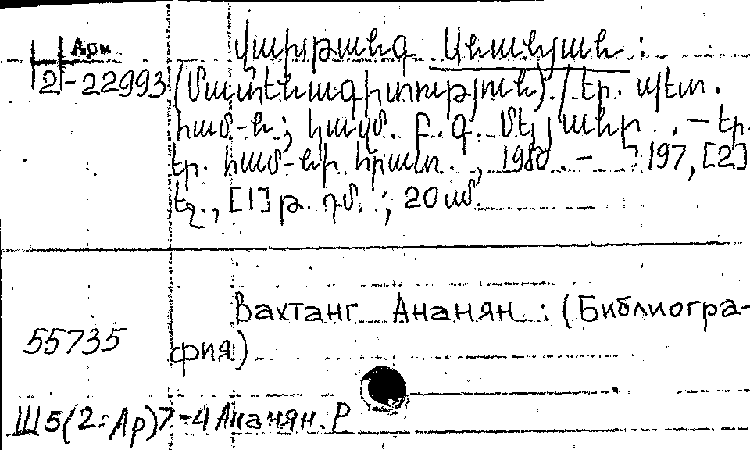 Арм
2-22993
Վախթանգ Անանյան :
(Մատենագիտություն) / Եր. պետ.
համ-ն ; կազմ. Բ. Գ. Մեյանի . — Եր.
Եր. համ-ի հրատ., 1980. — 197, [2]
էջ., [1] թ. դմ. ; 20 սմ.
Вахтанг Ананян : (Библиогра-
фия)
55735
Ш5(2=Ар)7-4 Ананян.Р